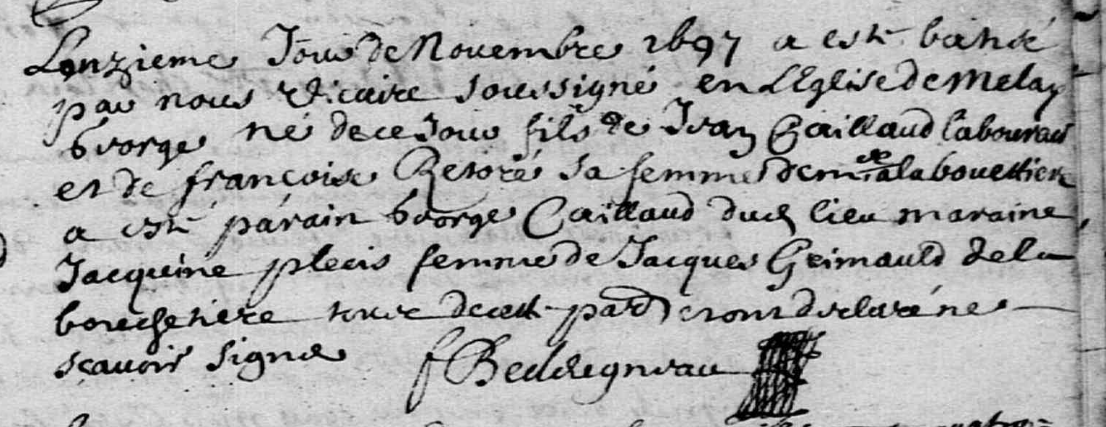 Lonzieme Jour de Novembre 1697 a esté batisé
par nous vicaire soussigné en LEglise de Melay
George né de ce Jour fils de Jean Caillaud laboureur
et de françoise Retoré sa femme demt a la bouettiere
a esté parain George Caillaud dud lieu maraine
Jacquine pleeis femme de Jacques Grimauld de la
bouchetiere tous de cett par qui ont declaré ne
scavoir signer